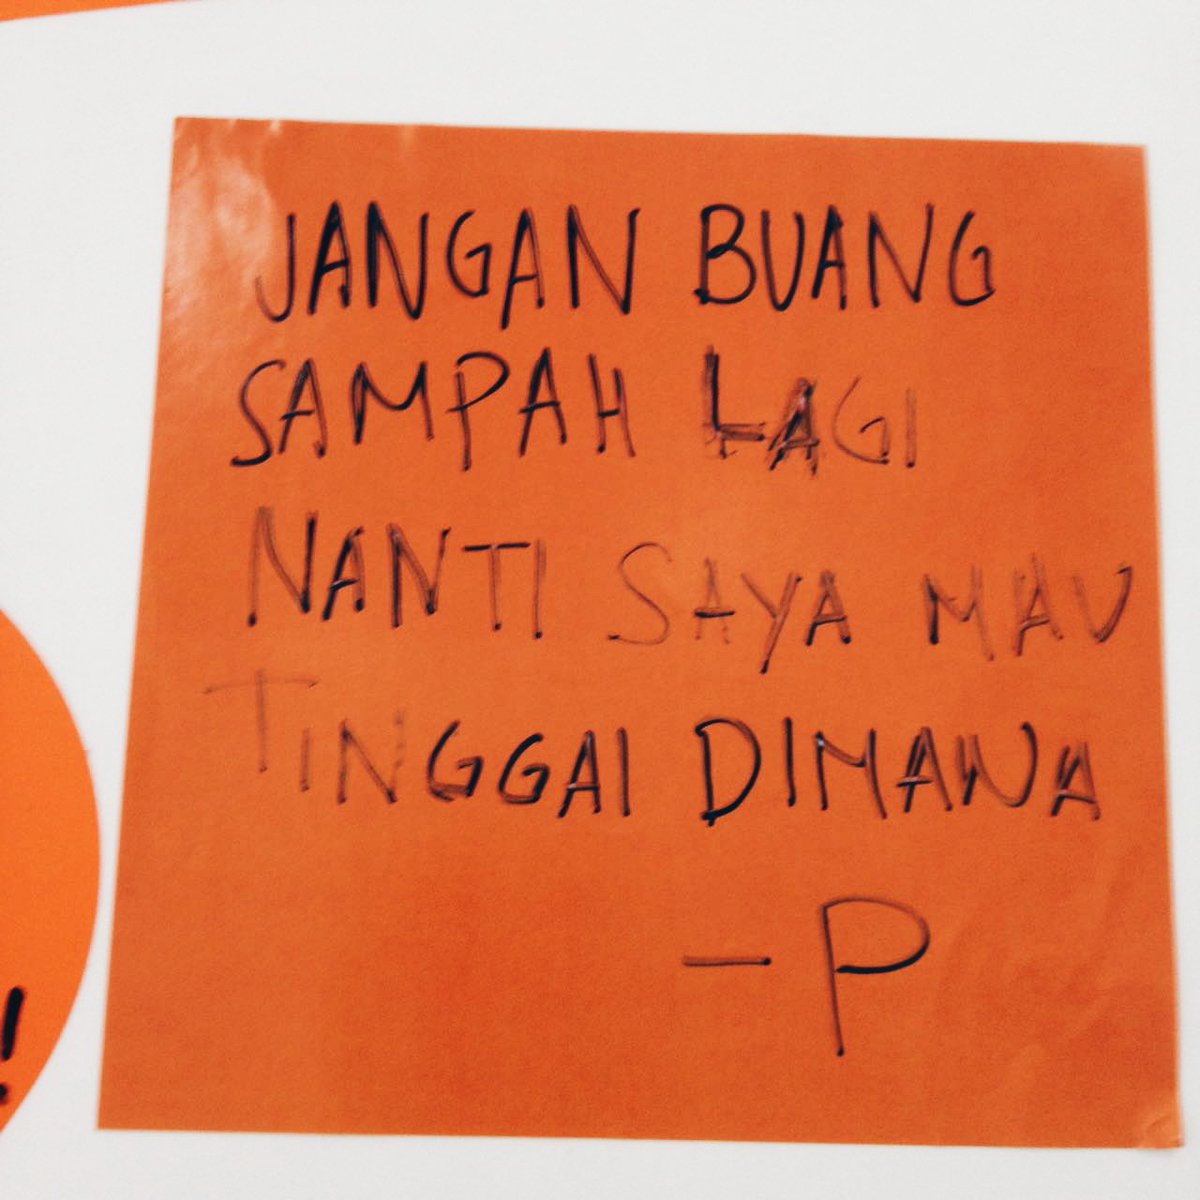 JANGAN BUANG
SAMPAH LAGI
NANTI SAYA MAU
TINGGAI DIMANA
- P
!